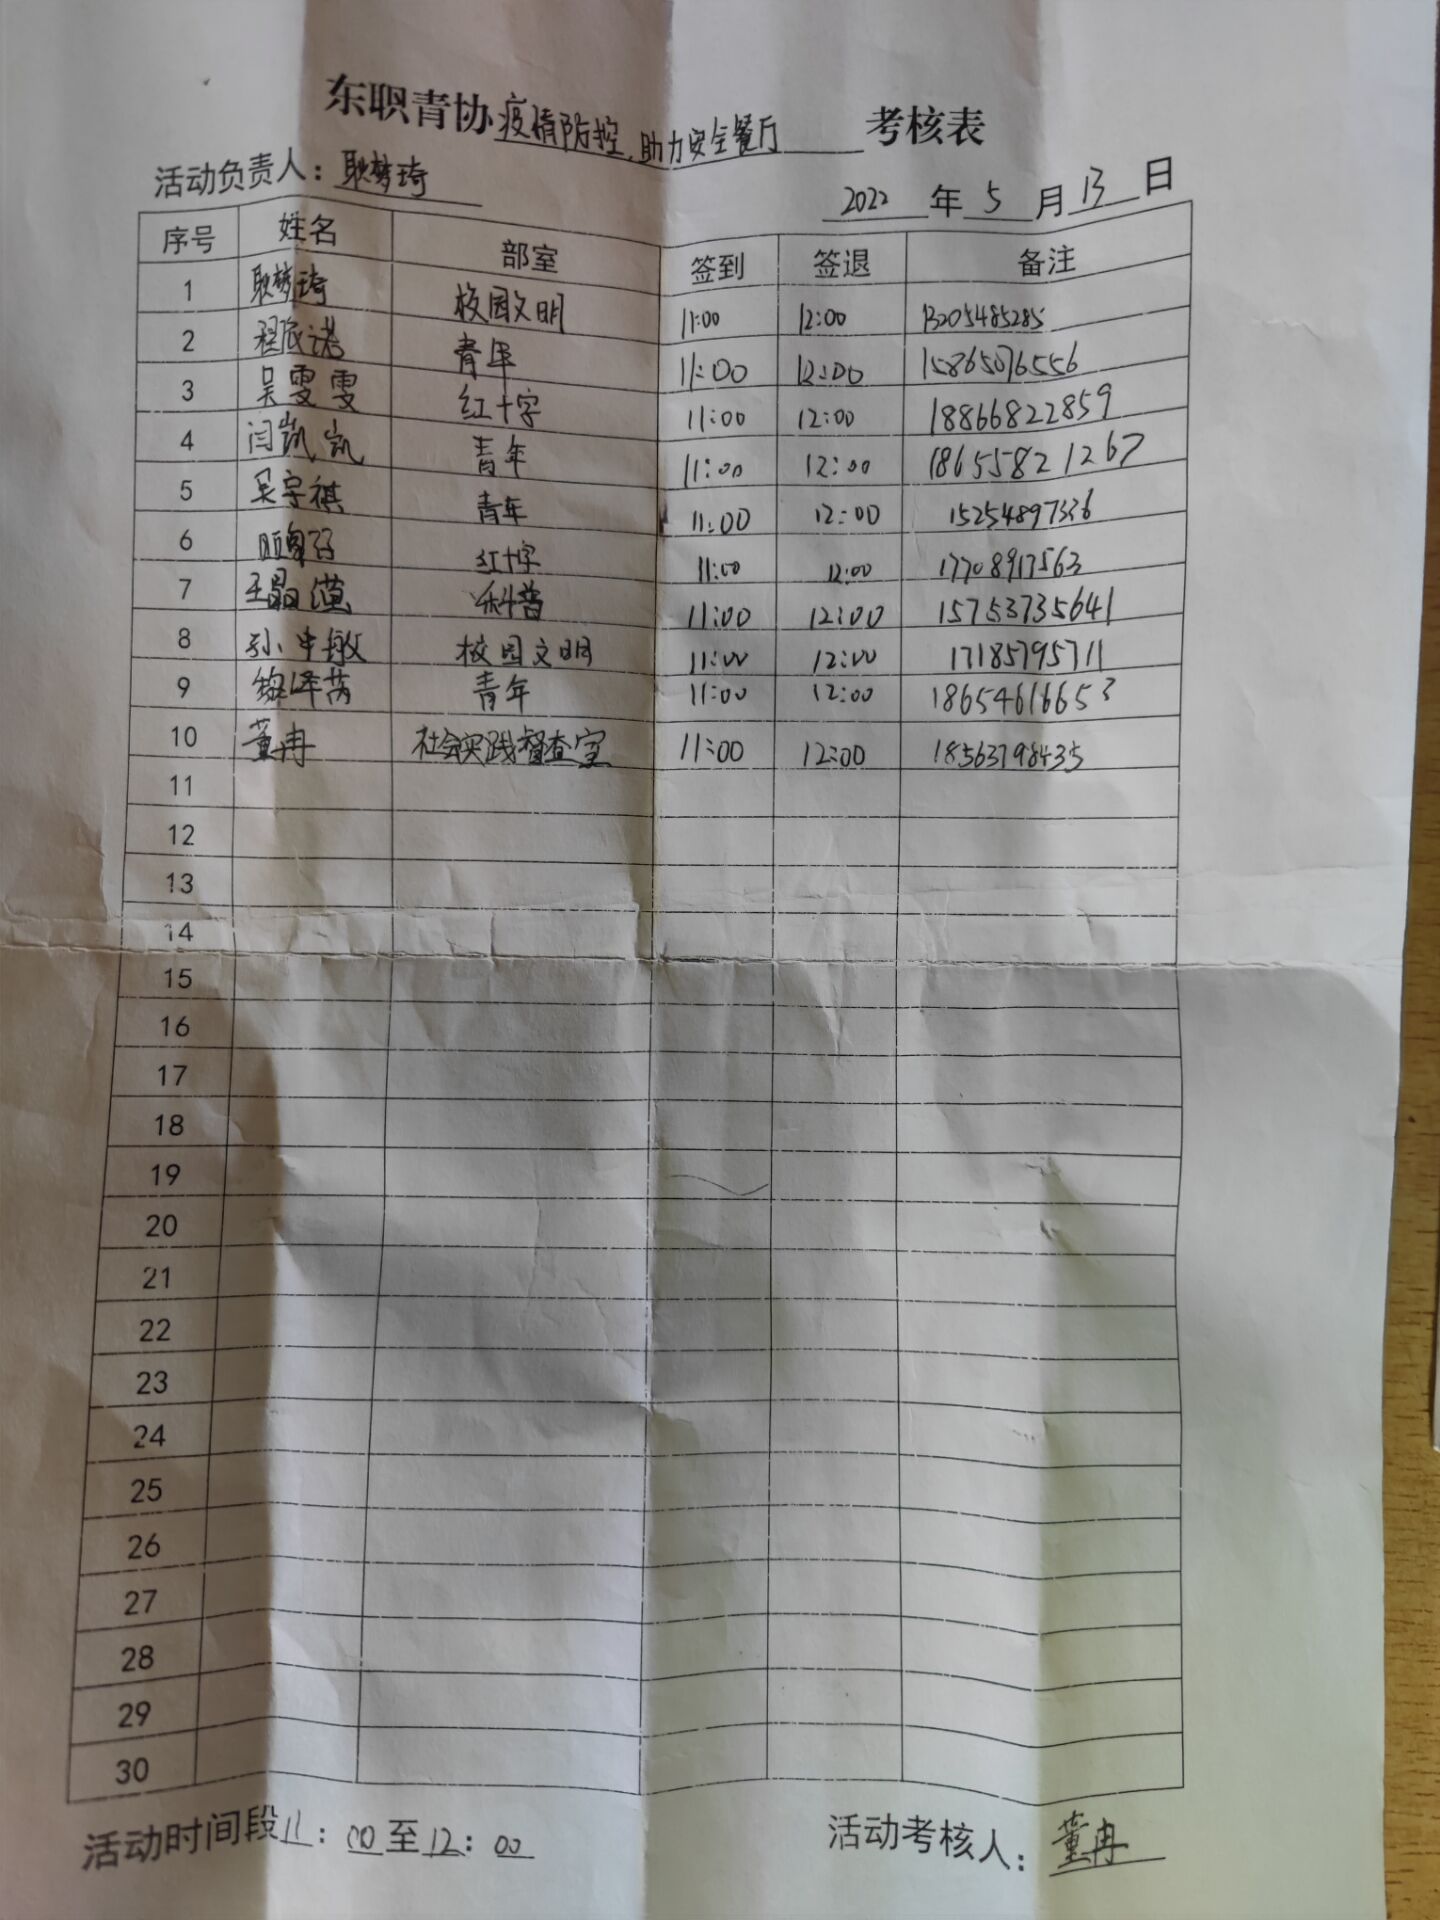 东职青协疫情防控,助力安全餐厅 考核表
活动负责人:耿梦琦
2022 年 5 月 13 日
序号 姓名 部室 签到 签退 备注
1 耿梦琦 校园文明 11:00 12:00 13205485285
2 程辰诺 青年 11:00 12:00 15865076556
3 吴雯雯 红十字 11:00 12:00 18866822859
4 闫凯凯 青年 11:00 12:00 18655821267
5 吴宇祺 青年 11:00 12:00 15254897336
6 红十字 11:00 12:00 17708917563
7 王晶滢 科普 11:00 12:00 15753735641
8 孙申敏 校园文明 11:00 12:00 17185795711
9 青年 11:00 12:00 18654616653
10 董冉 社会实践督查室 11:00 12:00 18563798435
11
12
13
14
15
16
17
18
19
20
21
22
23
24
25
26
27
28
29
30
活动时间段11:00至12:00 活动考核人:董冉